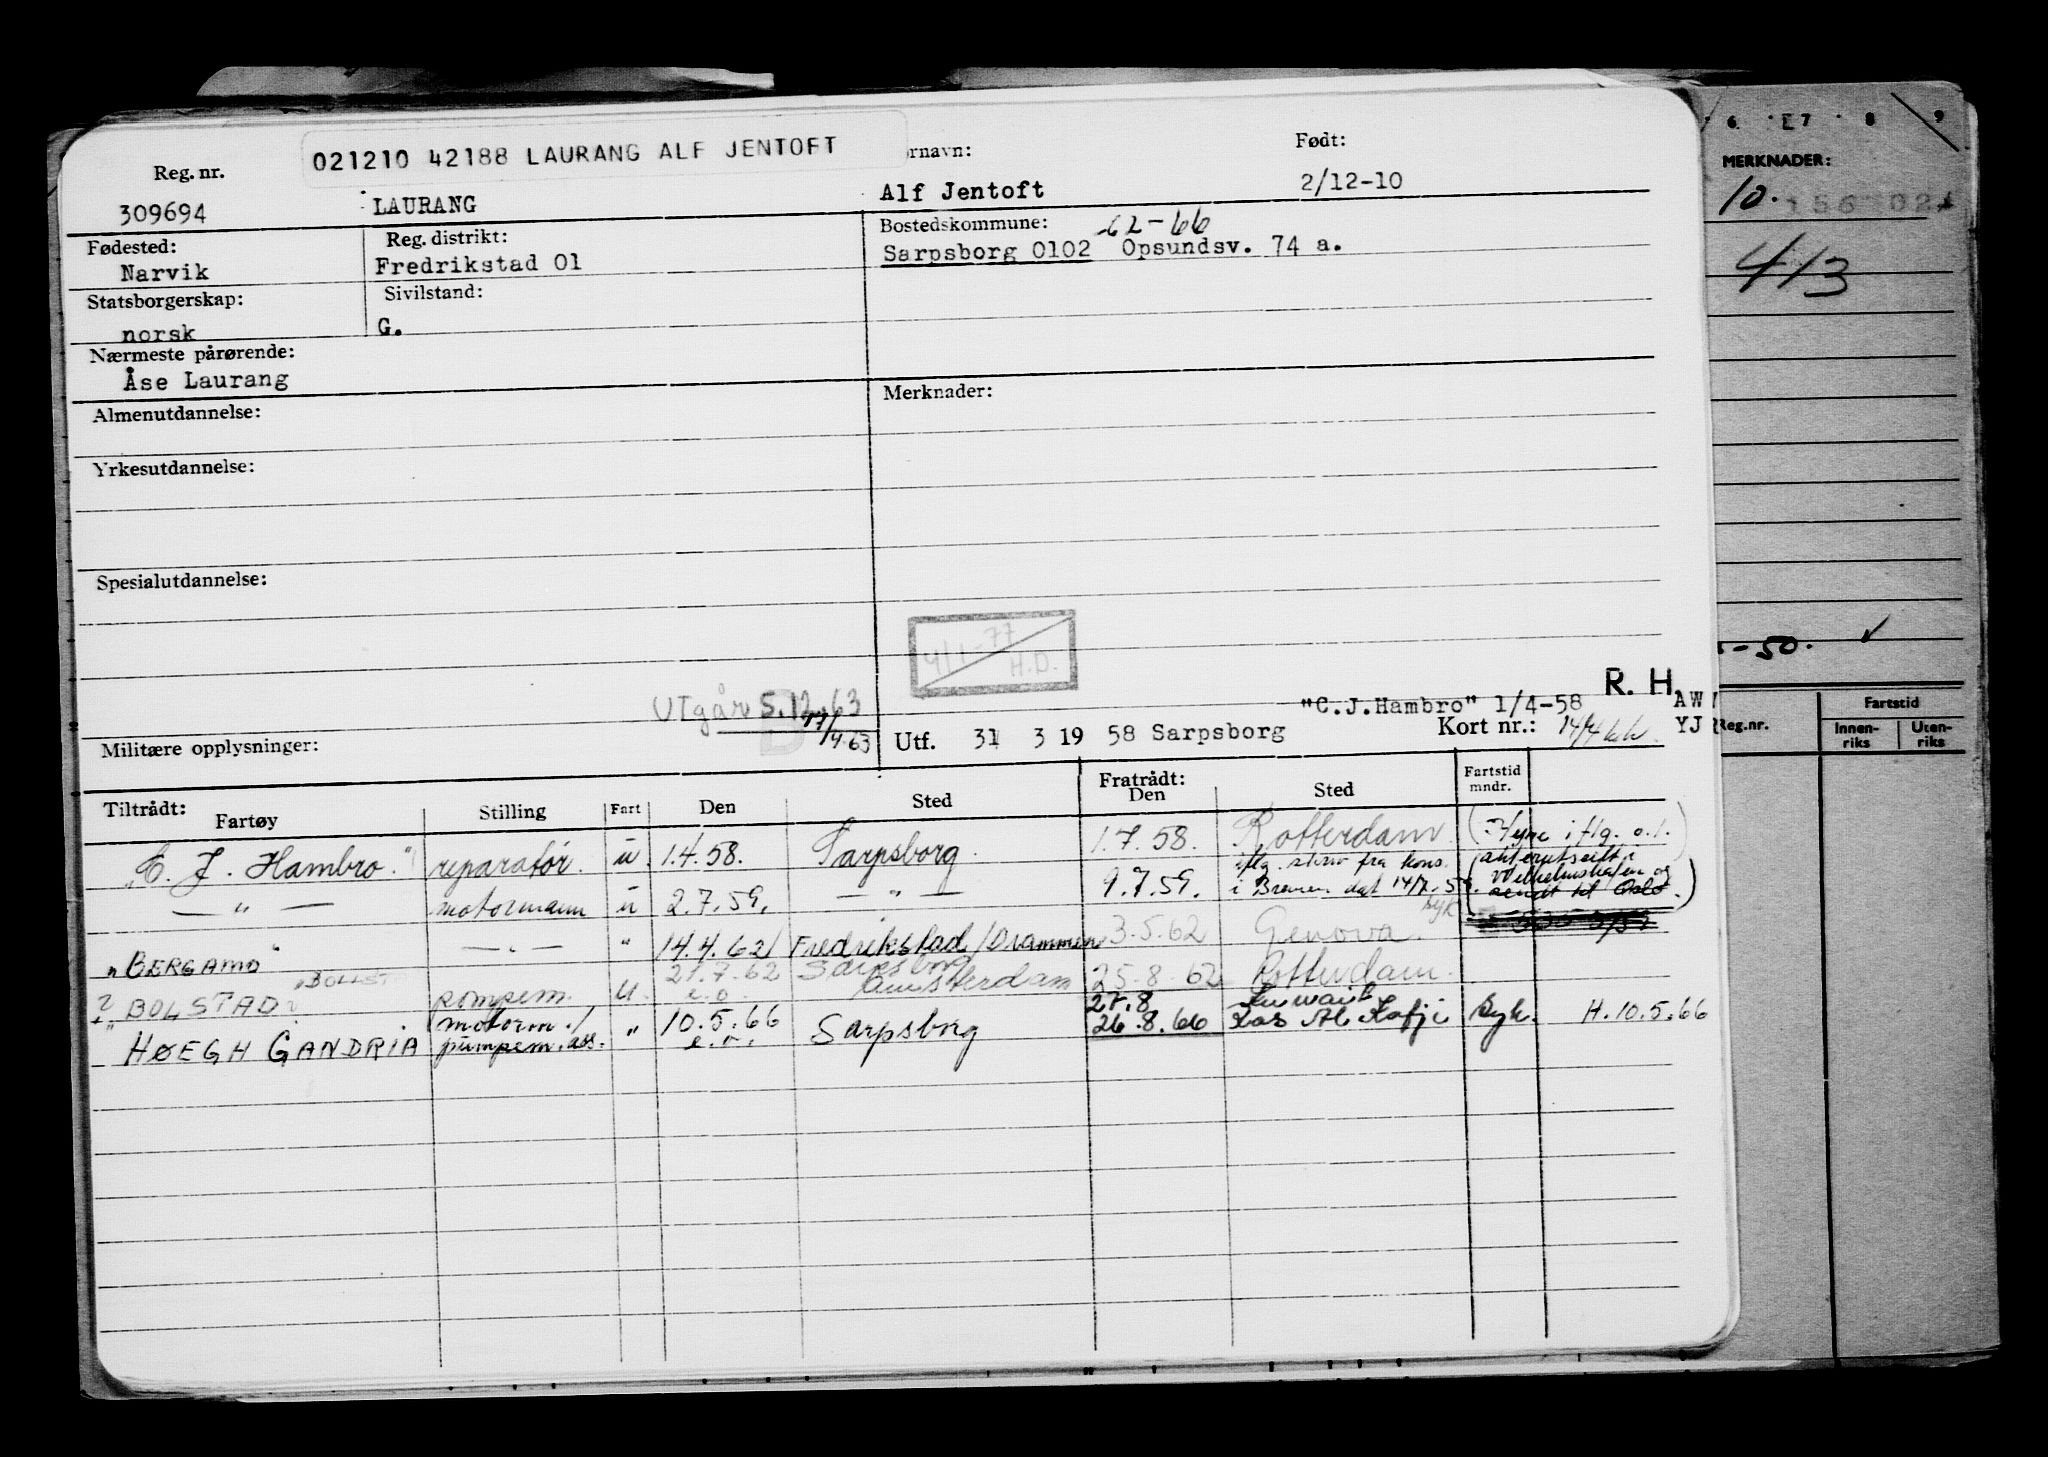 021210 42188 LAURANG ALF JENTOFT
Reg. nr. ornavn: Født:
309694 LAURANG Alf Jentoft 2/12-10
Fødested: Reg. distrikt: Bostedskommune: 62-66
Narvik Fredrikstad 01 Sarpsborg 0102 Opsundsv. 74 a.
Statsborgerskap: Sivilstand:
norsk G.
Nærmeste pårørende:
Åse Laurang
Almenutdannelse: Merknader:
Yrkesutdannelse:
Spesialutdannelse:
4/1-77
H.D.
UTgår 5.12.63
R. H.
"C.J.Hambro" 1/4-58
Militære opplysninger: Utf. 31 3 19 58 Sarpsborg Kort nr.:
Tiltrådt: Fratrådt:
Fartøy Stilling Fart Den Sted Den Sted Fartstid mndr.
"C. J. Hambro." reparatør. u. 1.4.58. Sarpsborg. 1.7.58. Rotterdam (Hyre iflg. o.l.
— " — motormann u 2.7.59. — " — 9.7.59. i Bremen dat 14/7.59.
"BERGAMO" — " — " 14.4.62 Fredrikstad/Drammen 3.5.62 Genova.
BOLSTAD pumpem. u. 21.7.62 Sarpsborg Amsterdam 25.8.62 Rotterdam.
"HØEGH GANDRIA motorm./ pumpem. ass. " 10.5.66 Sarpsborg 27.8 26.8.66 Kuwait Ras Al Kafji Syk. H.10.5.66
6 7 8 9
MERKNADER:
10.
4/3
-50.
AW
YJ
Reg.nr. Fartstid
Innen-riks Uten-riks